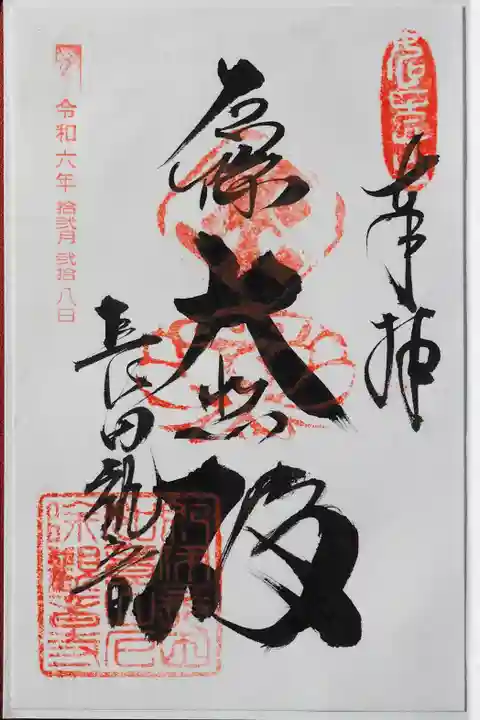 奉拝
厄除
大悲殿
長田観音
令和六年 拾弐月 弐拾八日